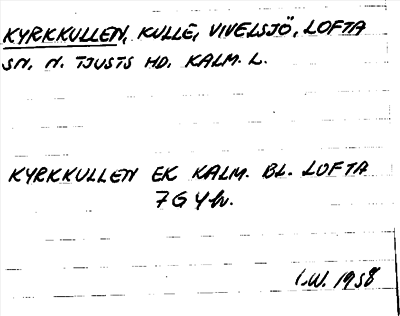 KYRKKULLEN, KULLE, VIVELSJÖ, LOFTA
SN. N. TJUSTS HD. KALM. L.
KYRKKULLEN EK KALM. BL. LOFTA
7G4h.
I.W. 1958